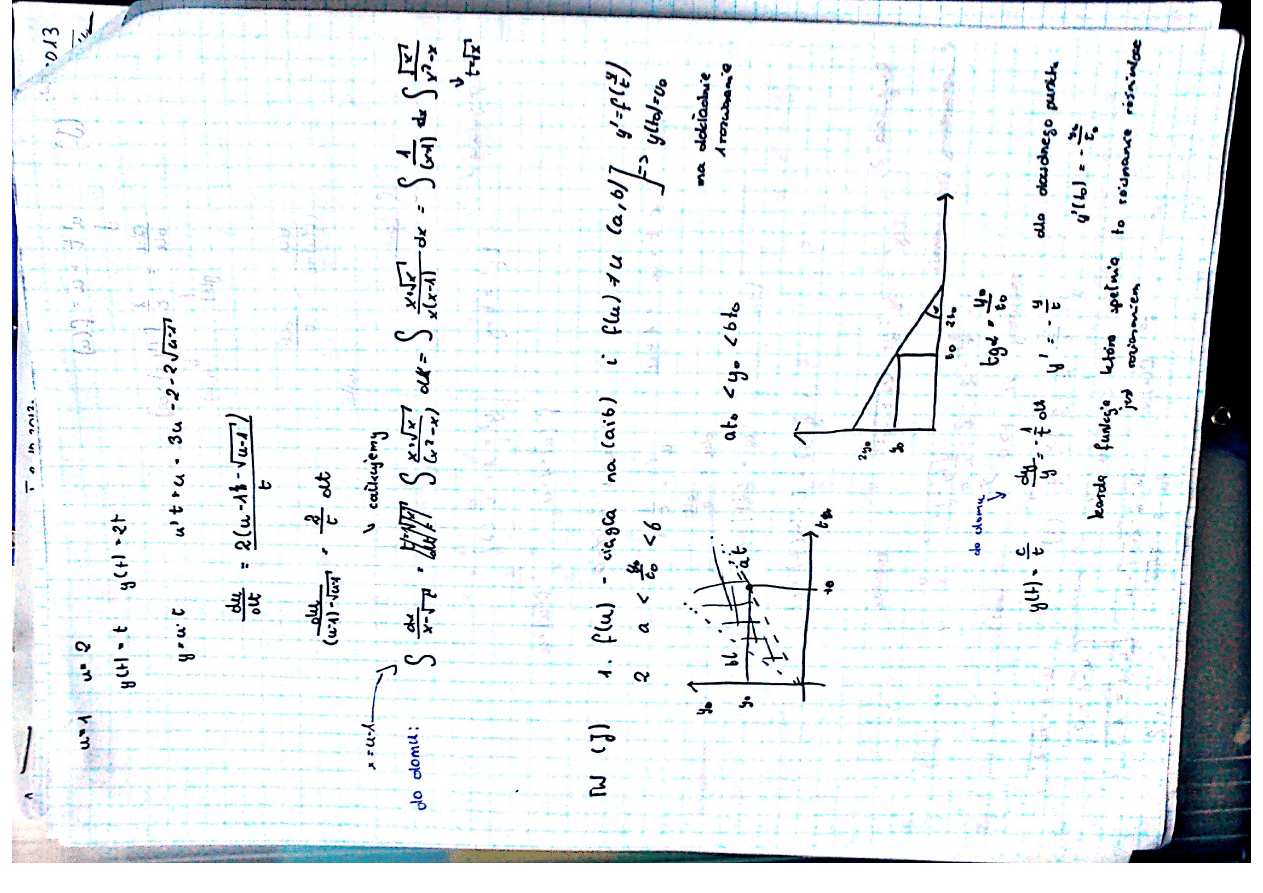 u=1 u=2
y(t)=t y(t)=2t
y=u·t u't+u=3u-2-2√(u-1)
du/dt = 2(u-1)-√(u-1)/t
du/(u-1)-√(u-1) = 2/t dt
↘ całkujemy
x=u-1
do domu: ∫ dx/(x-√x) ∫ (x+√x)/(x²-x) dx = ∫ (x+√x)/(x(x-1)) dx = ∫ 1/(x-1) dx ∫ √x/(x²-x)
t=√x
TW (J) 1. f(u) - ciągła na (a,b) i f(u)≠u (a,b) ] y'=f(y/t)
2 a < y₀/t₀ < b => y(t₀)=y₀
ma dokładnie
1 rozwiązanie
y₀
y₀
at
t₀
at₀ < y₀ < bt₀
2y₀
y₀
t₀ 2t₀
α
tgα = y₀/t₀
do domu
y(t) = c/t dy/y = -1/t dt y' = -y/t dla dowolnego punktu
y'(t₀) = -y₀/t₀
każda funkcja która spełnia to równanie różniczkowe
jest rozwiązaniem